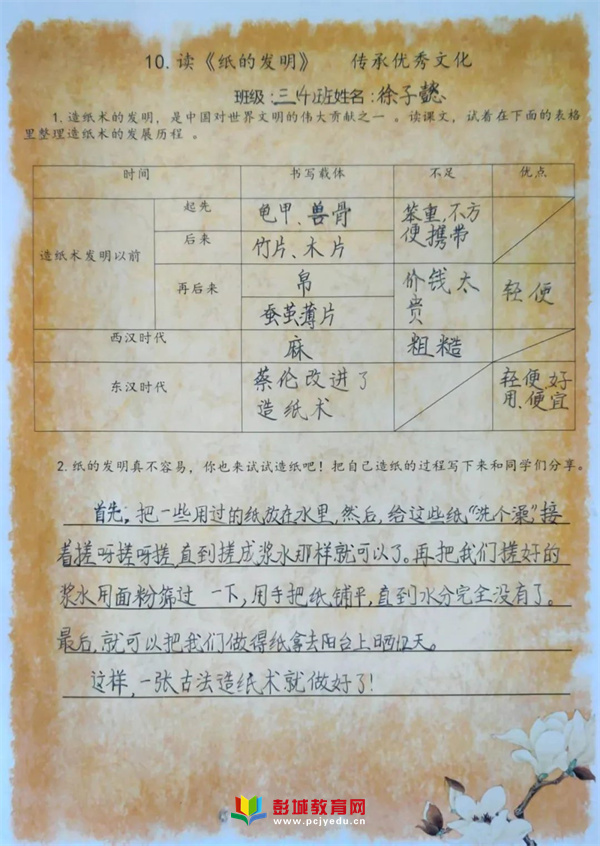 10.读《纸的发明》 传承优秀文化
班级:三(4)班姓名:徐子懿
1.造纸术的发明，是中国对世界文明的伟大贡献之一 。读课文，试着在下面的表格
里整理造纸术的发展历程 。
时间 书写载体 不足 优点
造纸术发明以前 起先 龟甲、兽骨 笨重,不方便携带
后来 竹片、木片
再后来 帛 价钱太贵 轻便
蚕茧薄片
西汉时代 麻 粗糙
东汉时代 蔡伦改进了造纸术 轻便、好用、便宜
2.纸的发明真不容易，你也来试试造纸吧！把自己造纸的过程写下来和同学们分享。
首先,把一些用过的纸放在水里,然后,给这些纸“洗个澡”接
着搓呀搓呀搓,直到搓成浆水那样就可以了。再把我们搓好的
浆水用面粉筛过一下,用手把纸铺平,直到水分完全没有了。
最后,就可以把我们做得纸拿去阳台上晒12天。
这样,一张古法造纸术就做好了!
彭城教育网
www.pcjyedu.cn